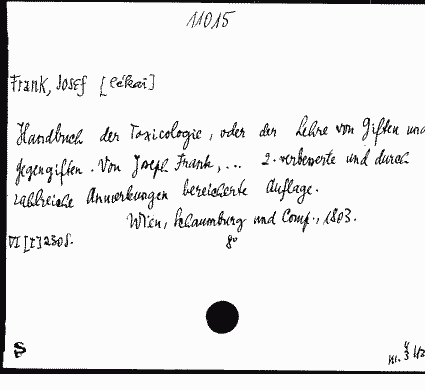 11015
Frank, Josef [lékař]
Handbuch der Toxicologie, oder der Lehre von Giften und
Gegengiften. Von Joseph Frank, ... 2. verbesserte und durch
zahlreiche Anmerkungen bereicherte Auflage.
Wien, Schaumburg und Comp., 1803.
VI [I] 230 S. 8°
S